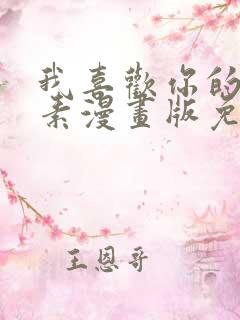 我喜歡你的
素漫畫版免
王恩哥